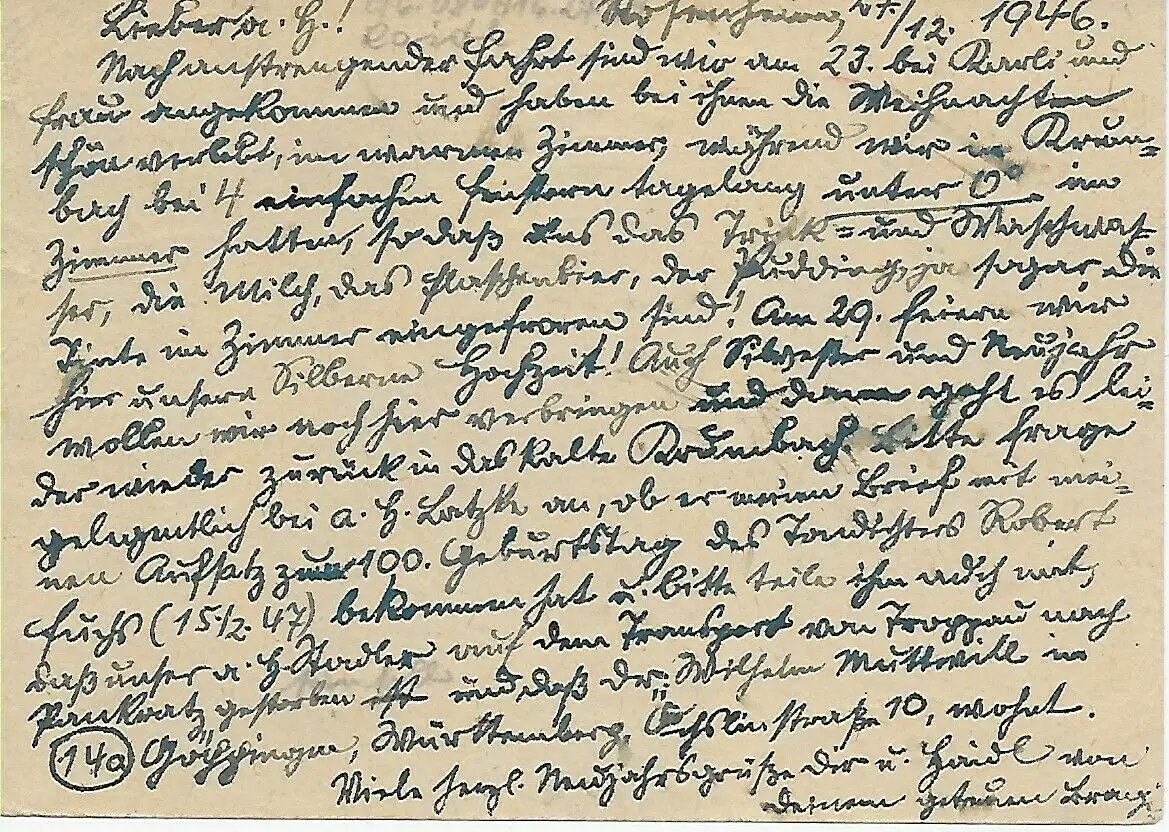 Lieber A. H.! Rosenheim, 27./12. 1946.
Nach anstrengender Fahrt sind wir am 23. bei Karli und
Frau angekommen und haben bei ihnen die Weihnachten
schön verlebt, im warmen Zimmer, während wir in Krum=
bach bei 4 einfachen Fenstern tagelang unter 0° im
Zimmer hatten, so daß uns das Trink= und Waschwas=
ser, die Milch, das Flaschenbier, der Pudding, ja sogar die
Tinte im Zimmer eingefroren sind! Am 29. feiern wir
hier unsere Silberne Hochzeit! Auch Silvester und Neujahr
wollen wir noch hier verbringen und dann geht es lei=
der wieder zurück in das kalte Krumbach. Bitte frage
gelegentlich bei A. H. Latzke an, ob er meinen Brief mit mei=
nen Aufsatz zum 100. Geburtstag des Tondichters Robert
Fuchs (15./2. 47) bekommen hat u. bitte teile ihm auch mit,
daß unser A. H. Stadler auf dem Transport von Troppau nach
Pankratz gestorben ist und daß Dr. Wilhelm Muttwill in
(14a) Göppingen, Württemberg, Öchslinstraße 10, wohnt.
Viele herzl. Neujahrsgrüße Dir u. Haidl von
Deinem getreuen